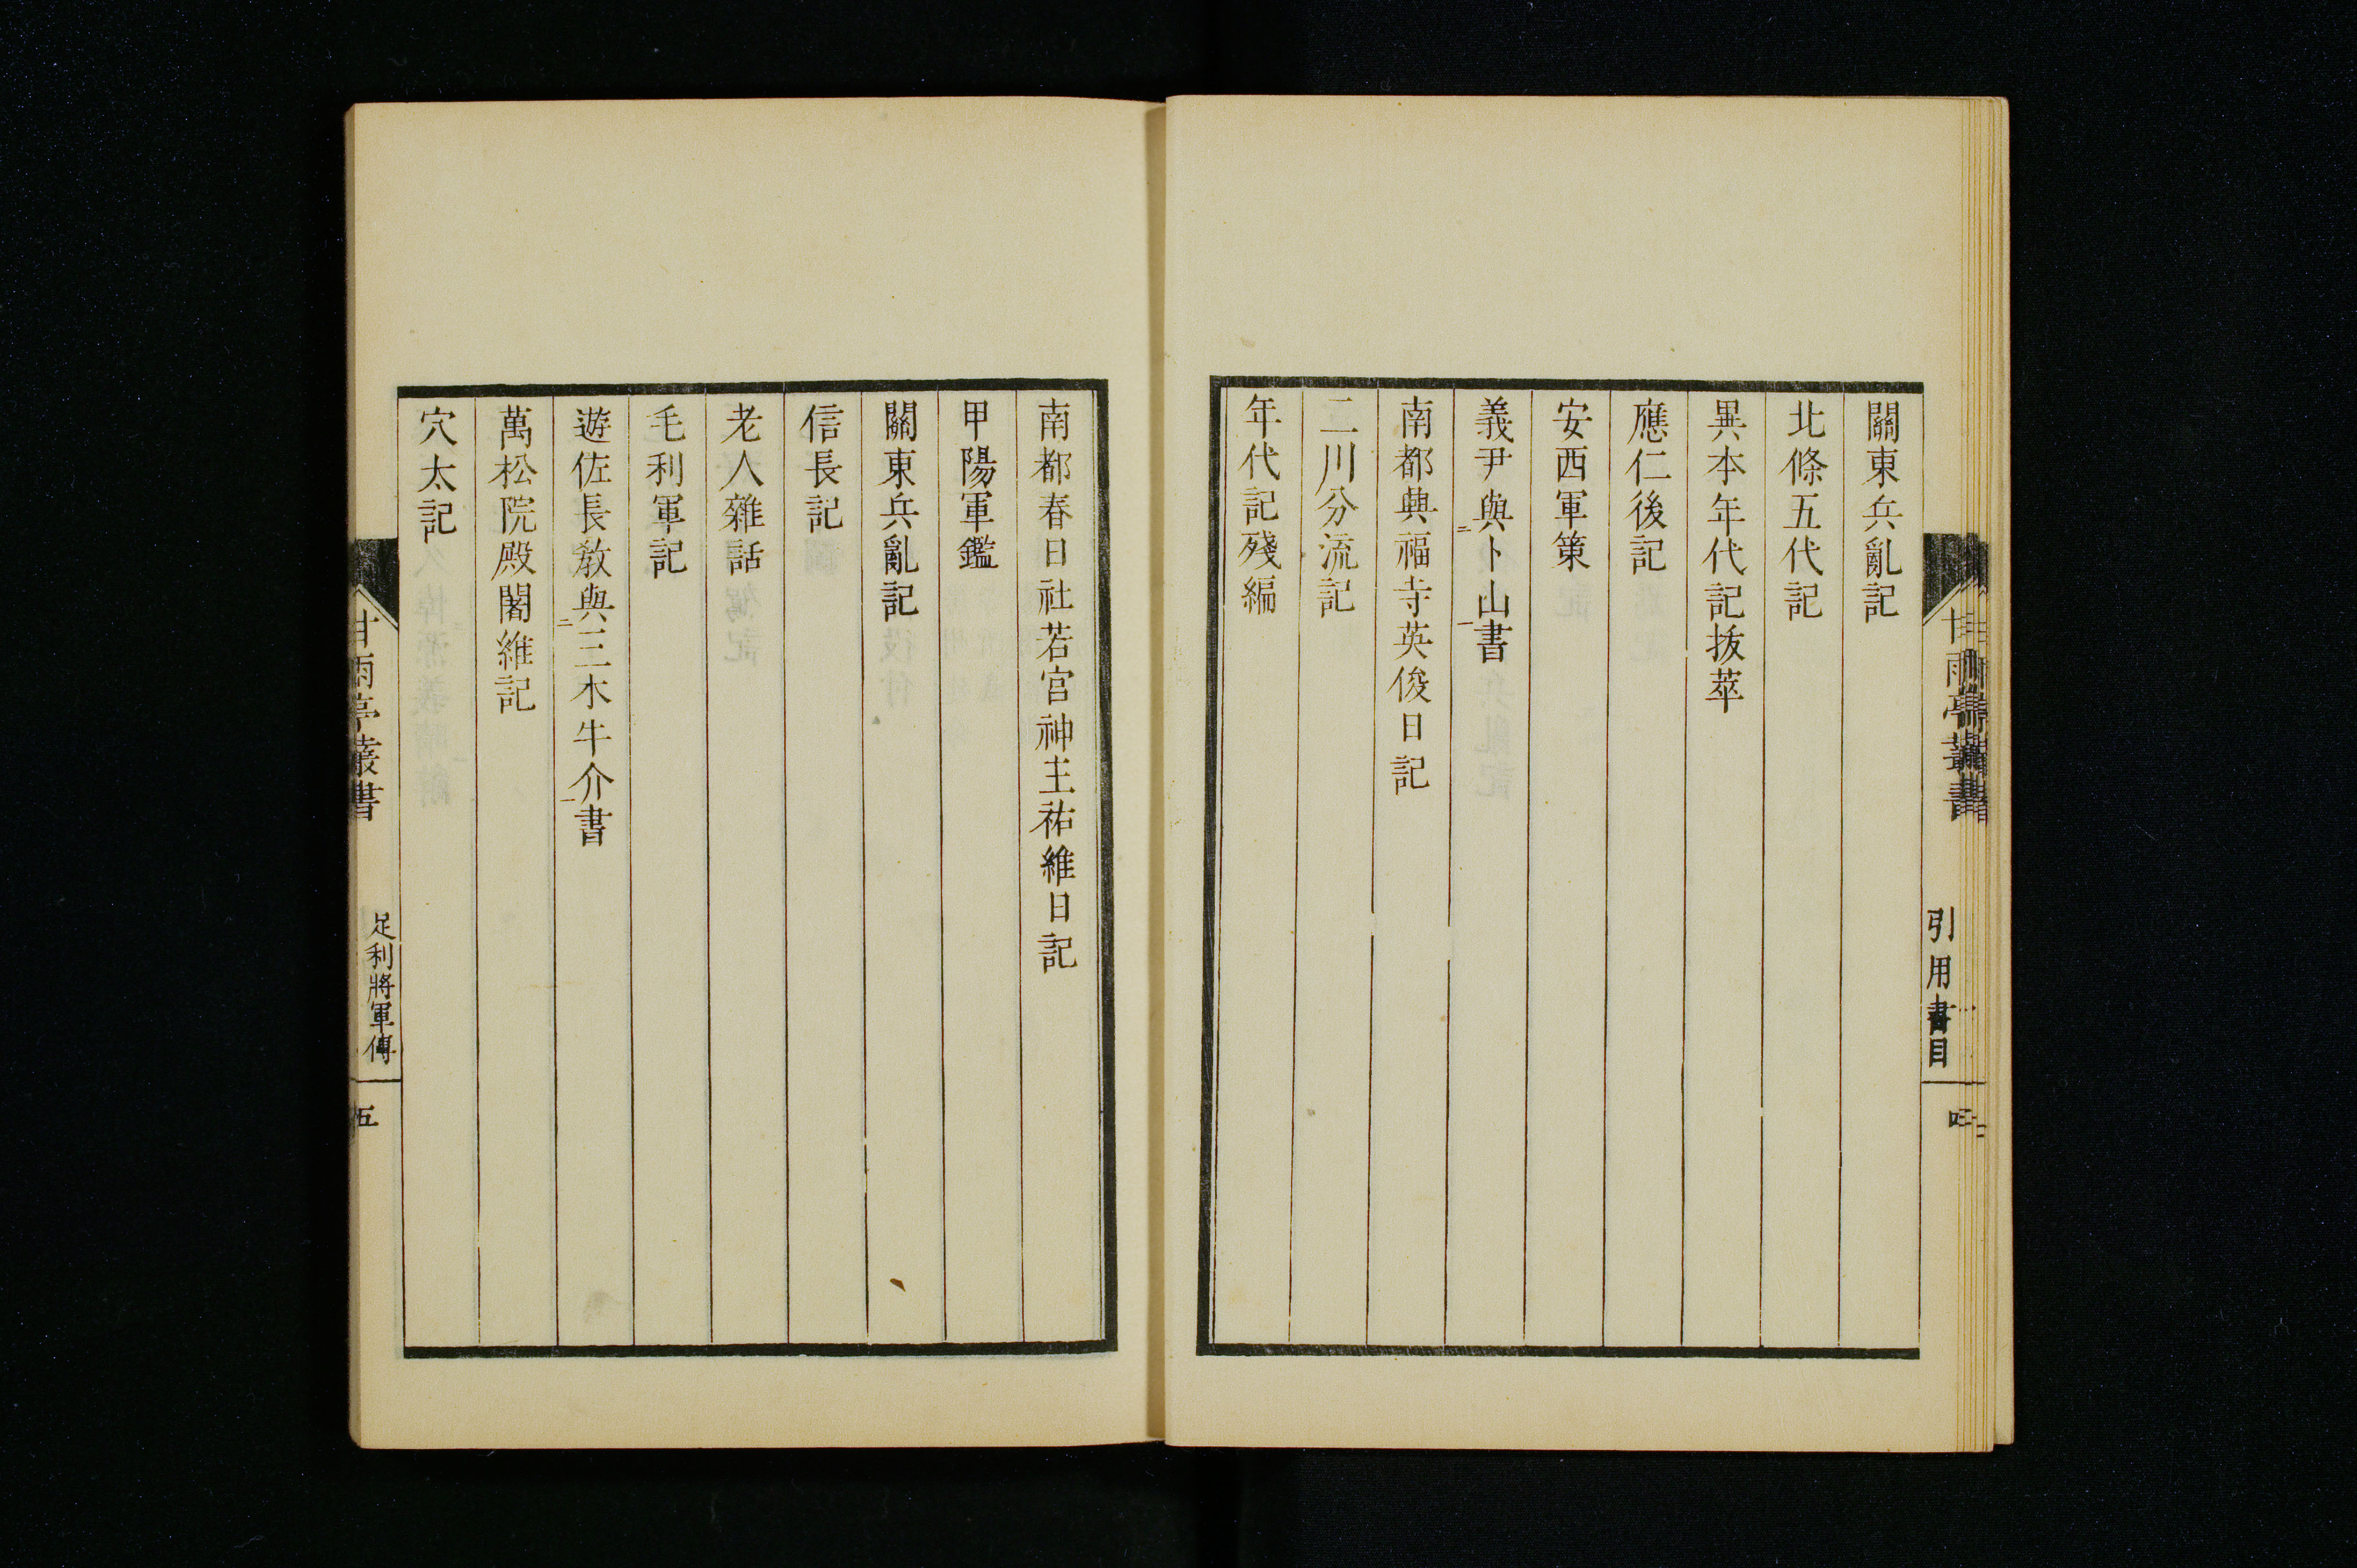 關東兵亂記
北條五代記
異本年代記抜萃
應仁後記
安西軍策
義尹與㆓卜山㆒書
南都興福寺英俊日記
二川分流記
年代記殘編
引用書目
四
南都春日社若宮神主祐維日記
甲陽軍鑑
關東兵亂記
信長記
老人雜話
毛利軍記
遊佐長教與㆓三木牛介㆒書
萬松院殿闍維記
穴太記
甘雨亭叢書
足利將軍傳
五